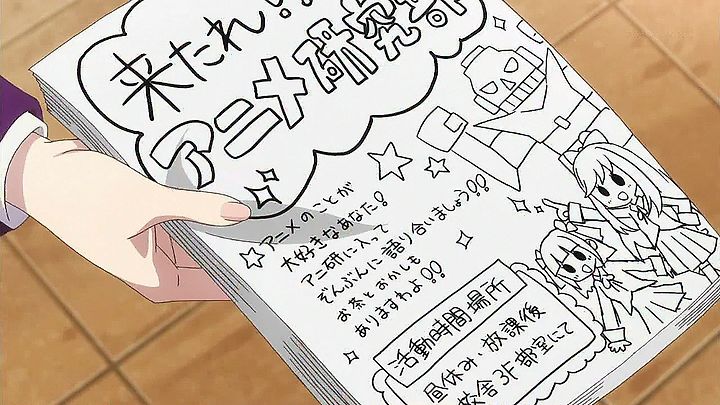 来たれ!!
アニメ研究部
☆アニメのことが
大好きなあなた!
アニ研に入って
ぞんぶんに語り合いましょう!!
お茶とおかしも
ありますわよ!!
活動時間場所
昼休み・放課後
校舎3F部室にて